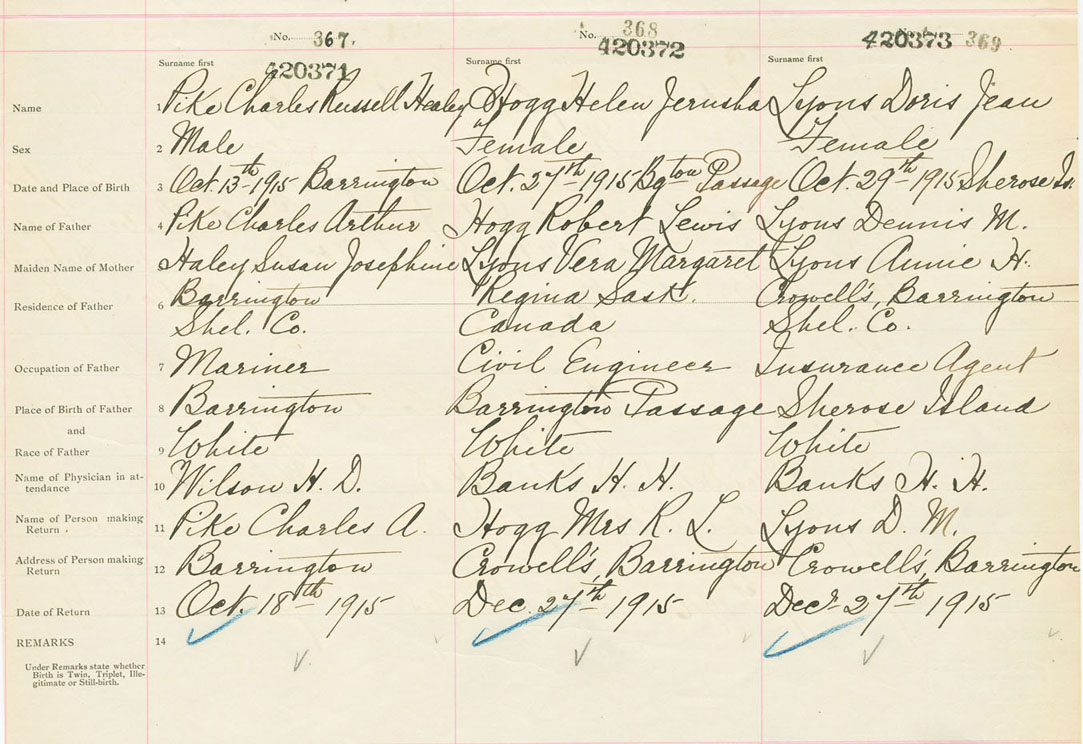 No. 367. No. 368 420373 369
420371 420372
Surname first Surname first Surname first
Name 1 Pike Charles Russell Healey Hogg Helen Jerusha Lyons Doris Jean
Sex 2 Male Female Female
Date and Place of Birth 3 Oct. 13th 1915 Barrington Oct. 27th 1915 Bgton Passage Oct. 29th 1915 Sherose Is.
Name of Father 4 Pike Charles Arthur Hogg Robert Lewis Lyons Dennis M.
Maiden Name of Mother Haley Susan Josephine Lyons Vera Margaret Lyons Annie H.
Residence of Father 6 Barrington Regina Sask. Crowell's, Barrington
Shel. Co. Canada Shel. Co.
Occupation of Father 7 Mariner Civil Engineer Insurance Agent
Place of Birth of Father 8 Barrington Barrington Passage Sherose Island
and
Race of Father 9 White White White
Name of Physician in at-
tendance 10 Wilson H. D. Banks H. H. Banks H. H.
Name of Person making
Return. 11 Pike Charles A. Hogg Mrs R. L. Lyons D. M.
Address of Person making
Return 12 Barrington Crowell's, Barrington Crowell's, Barrington
Date of Return 13 Oct. 18th 1915 Dec. 27th 1915 Decr 27th 1915
REMARKS 14
Under Remarks state whether
Birth is Twin, Triplet, Ille-
gitimate or Still-birth.